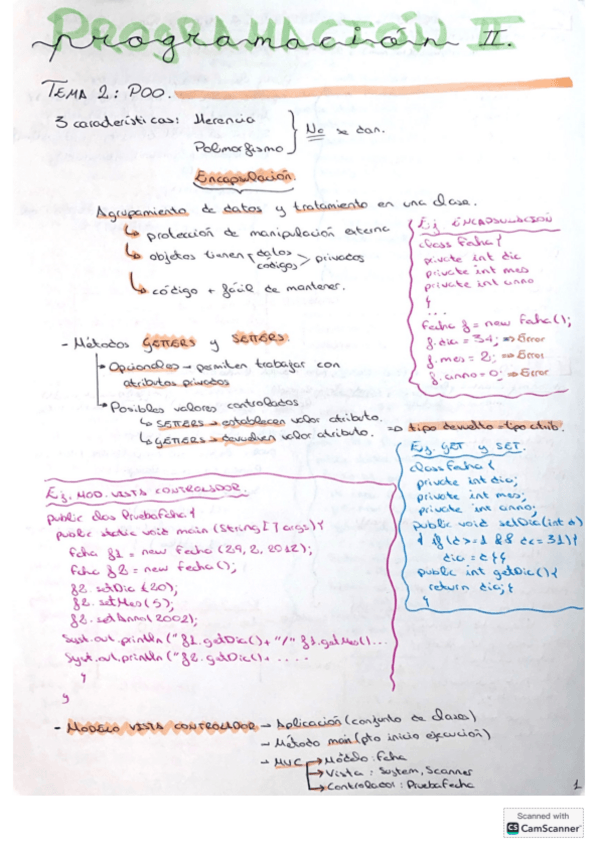 PROGRAMACIÓN II.
programación
TEMA 2: POO.
3 características: Herencia
Polimorfismo
No se dan.
Encapsulación
Agrupamiento de datos y tratamiento en una clase.
↳ protección de manipulación externa
↳ objetos tienen datos
códigos > privados
↳ código + fácil de mantener.
Ej ENCAPSULACIÓN
class Fecha {
private int dia
private int mes
private int anno
}
...
Fecha f = new Fecha();
f.dia = 34; => Error
f.mes = 2; => Error
f.anno = 0; => Error
- Métodos GETTERS y SETTERS.
Opcionales → permiten trabajar con
atributos privados
Posibles valores controlados.
↳ SETTERS → establecen valor atributo.
↳ GETTERS → devuelven valor atributo. => tipo devuelto = tipo atrib.
Ej. GET y SET.
class Fecha {
private int dia;
private int mes;
private int anno;
public void setDia(int d)
{ if (d>=1 && d<=31) {
dia = d } }
public int getDia() {
return dia; }
}
Ej. MOD. VISTA CONTROLADOR.
public class PruebaFecha {
public static void main (String [] args) {
fecha f1 = new Fecha (29, 2, 2012);
fecha f2 = new Fecha ();
f2. setDia (20);
f2. setMes (5);
f2. setAnno (2002);
Syst.out.println ("f1.getDia()+ "/" f1.getMes()...
Syst.out.println ("f2. getDia()+ ....
}
}
- MODELO VISTA CONTROLADOR → Aplicación (conjunto de clases)
→ Método main (pto inicio ejecución)
→ MVC → Módulo: Fecha
→ Vista: System, Scanner
→ Controlador: PruebaFecha
1
Scanned with
CS CamScanner